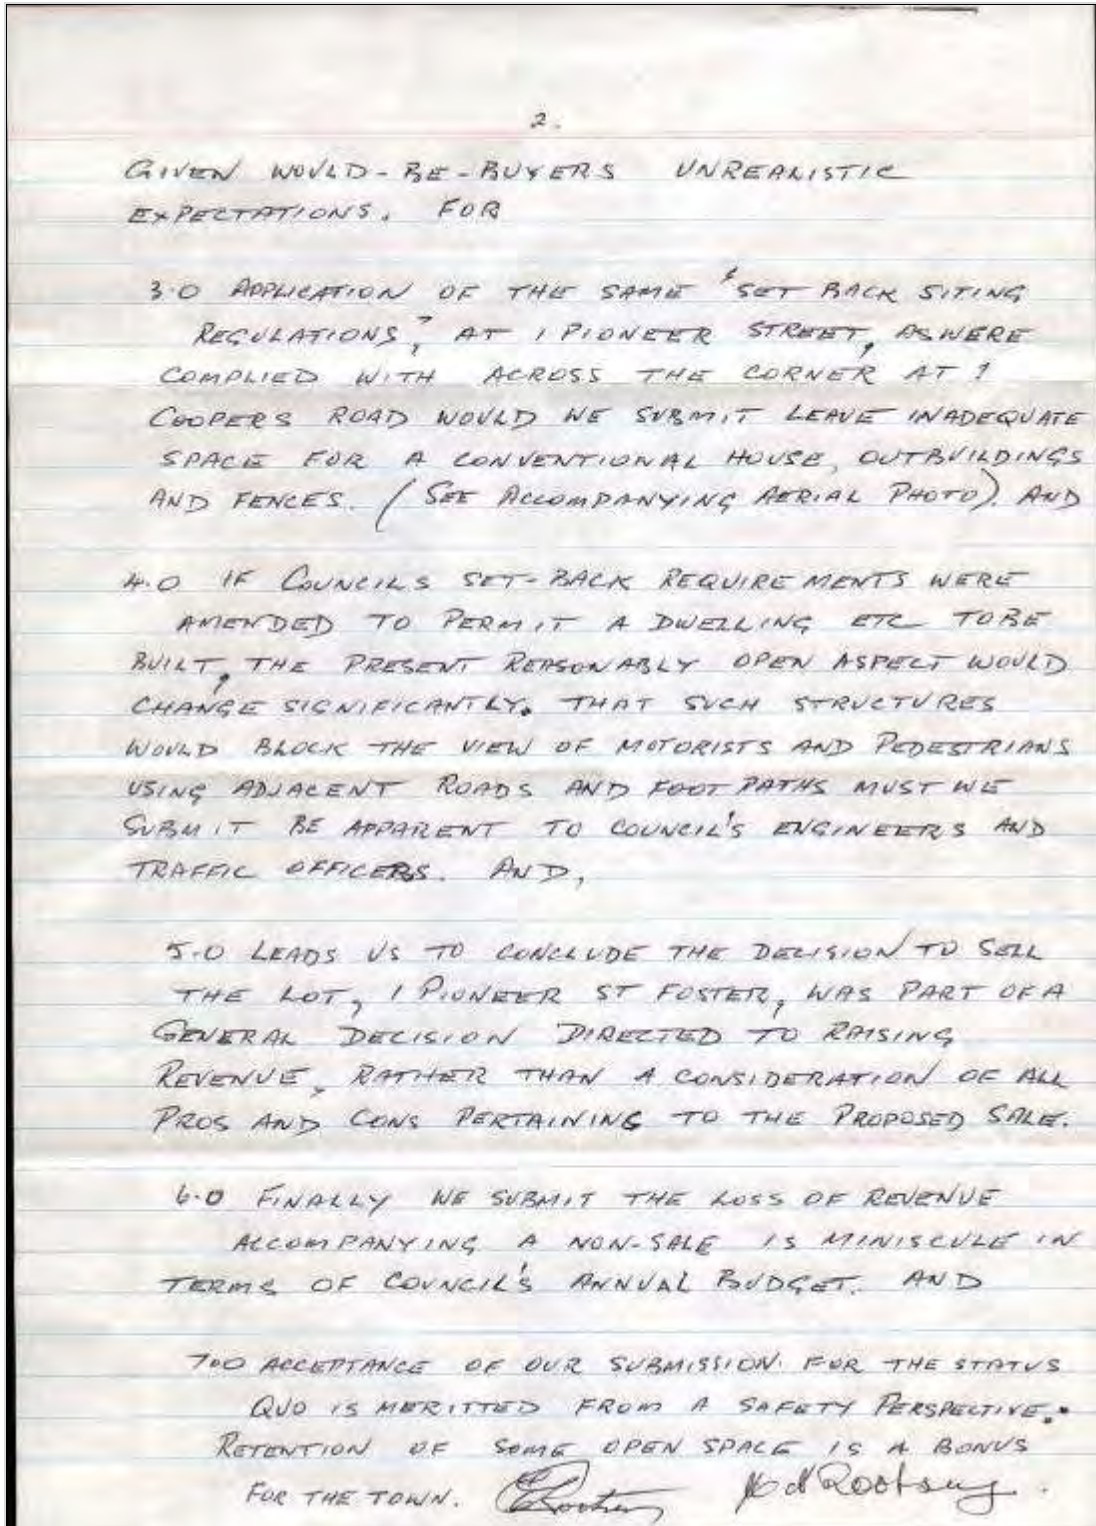 2.
GIVEN WOULD-BE-BUYERS UNREALISTIC
EXPECTATIONS. FOR
3.0 APPLICATION OF THE SAME "SET BACK SITING
REGULATIONS," AT 1 PIONEER STREET, AS WERE
COMPLIED WITH ACROSS THE CORNER AT 1
COOPERS ROAD WOULD WE SUBMIT LEAVE INADEQUATE
SPACE FOR A CONVENTIONAL HOUSE, OUTBUILDINGS
AND FENCES. (SEE ACCOMPANYING AERIAL PHOTO). AND
4.0 IF COUNCILS SET-BACK REQUIREMENTS WERE
AMENDED TO PERMIT A DWELLING ETC TO BE
BUILT, THE PRESENT REASONABLY OPEN ASPECT WOULD
CHANGE SIGNIFICANTLY. THAT SUCH STRUCTURES
WOULD BLOCK THE VIEW OF MOTORISTS AND PEDESTRIANS
USING ADJACENT ROADS AND FOOT PATHS MUST WE
SUBMIT BE APPARENT TO COUNCIL'S ENGINEERS AND
TRAFFIC OFFICERS. AND,
5.0 LEADS US TO CONCLUDE THE DECISION TO SELL
THE LOT, 1 PIONEER ST FOSTER, WAS PART OF A
GENERAL DECISION DIRECTED TO RAISING
REVENUE, RATHER THAN A CONSIDERATION OF ALL
PROS AND CONS PERTAINING TO THE PROPOSED SALE.
6.0 FINALLY WE SUBMIT THE LOSS OF REVENUE
ACCOMPANYING A NON-SALE IS MINISCULE IN
TERMS OF COUNCIL'S ANNUAL BUDGET. AND
7.0 ACCEPTANCE OF OUR SUBMISSION FOR THE STATUS
QUO IS MERITTED FROM A SAFETY PERSPECTIVE.
RETENTION OF SOME OPEN SPACE IS A BONUS
FOR THE TOWN.